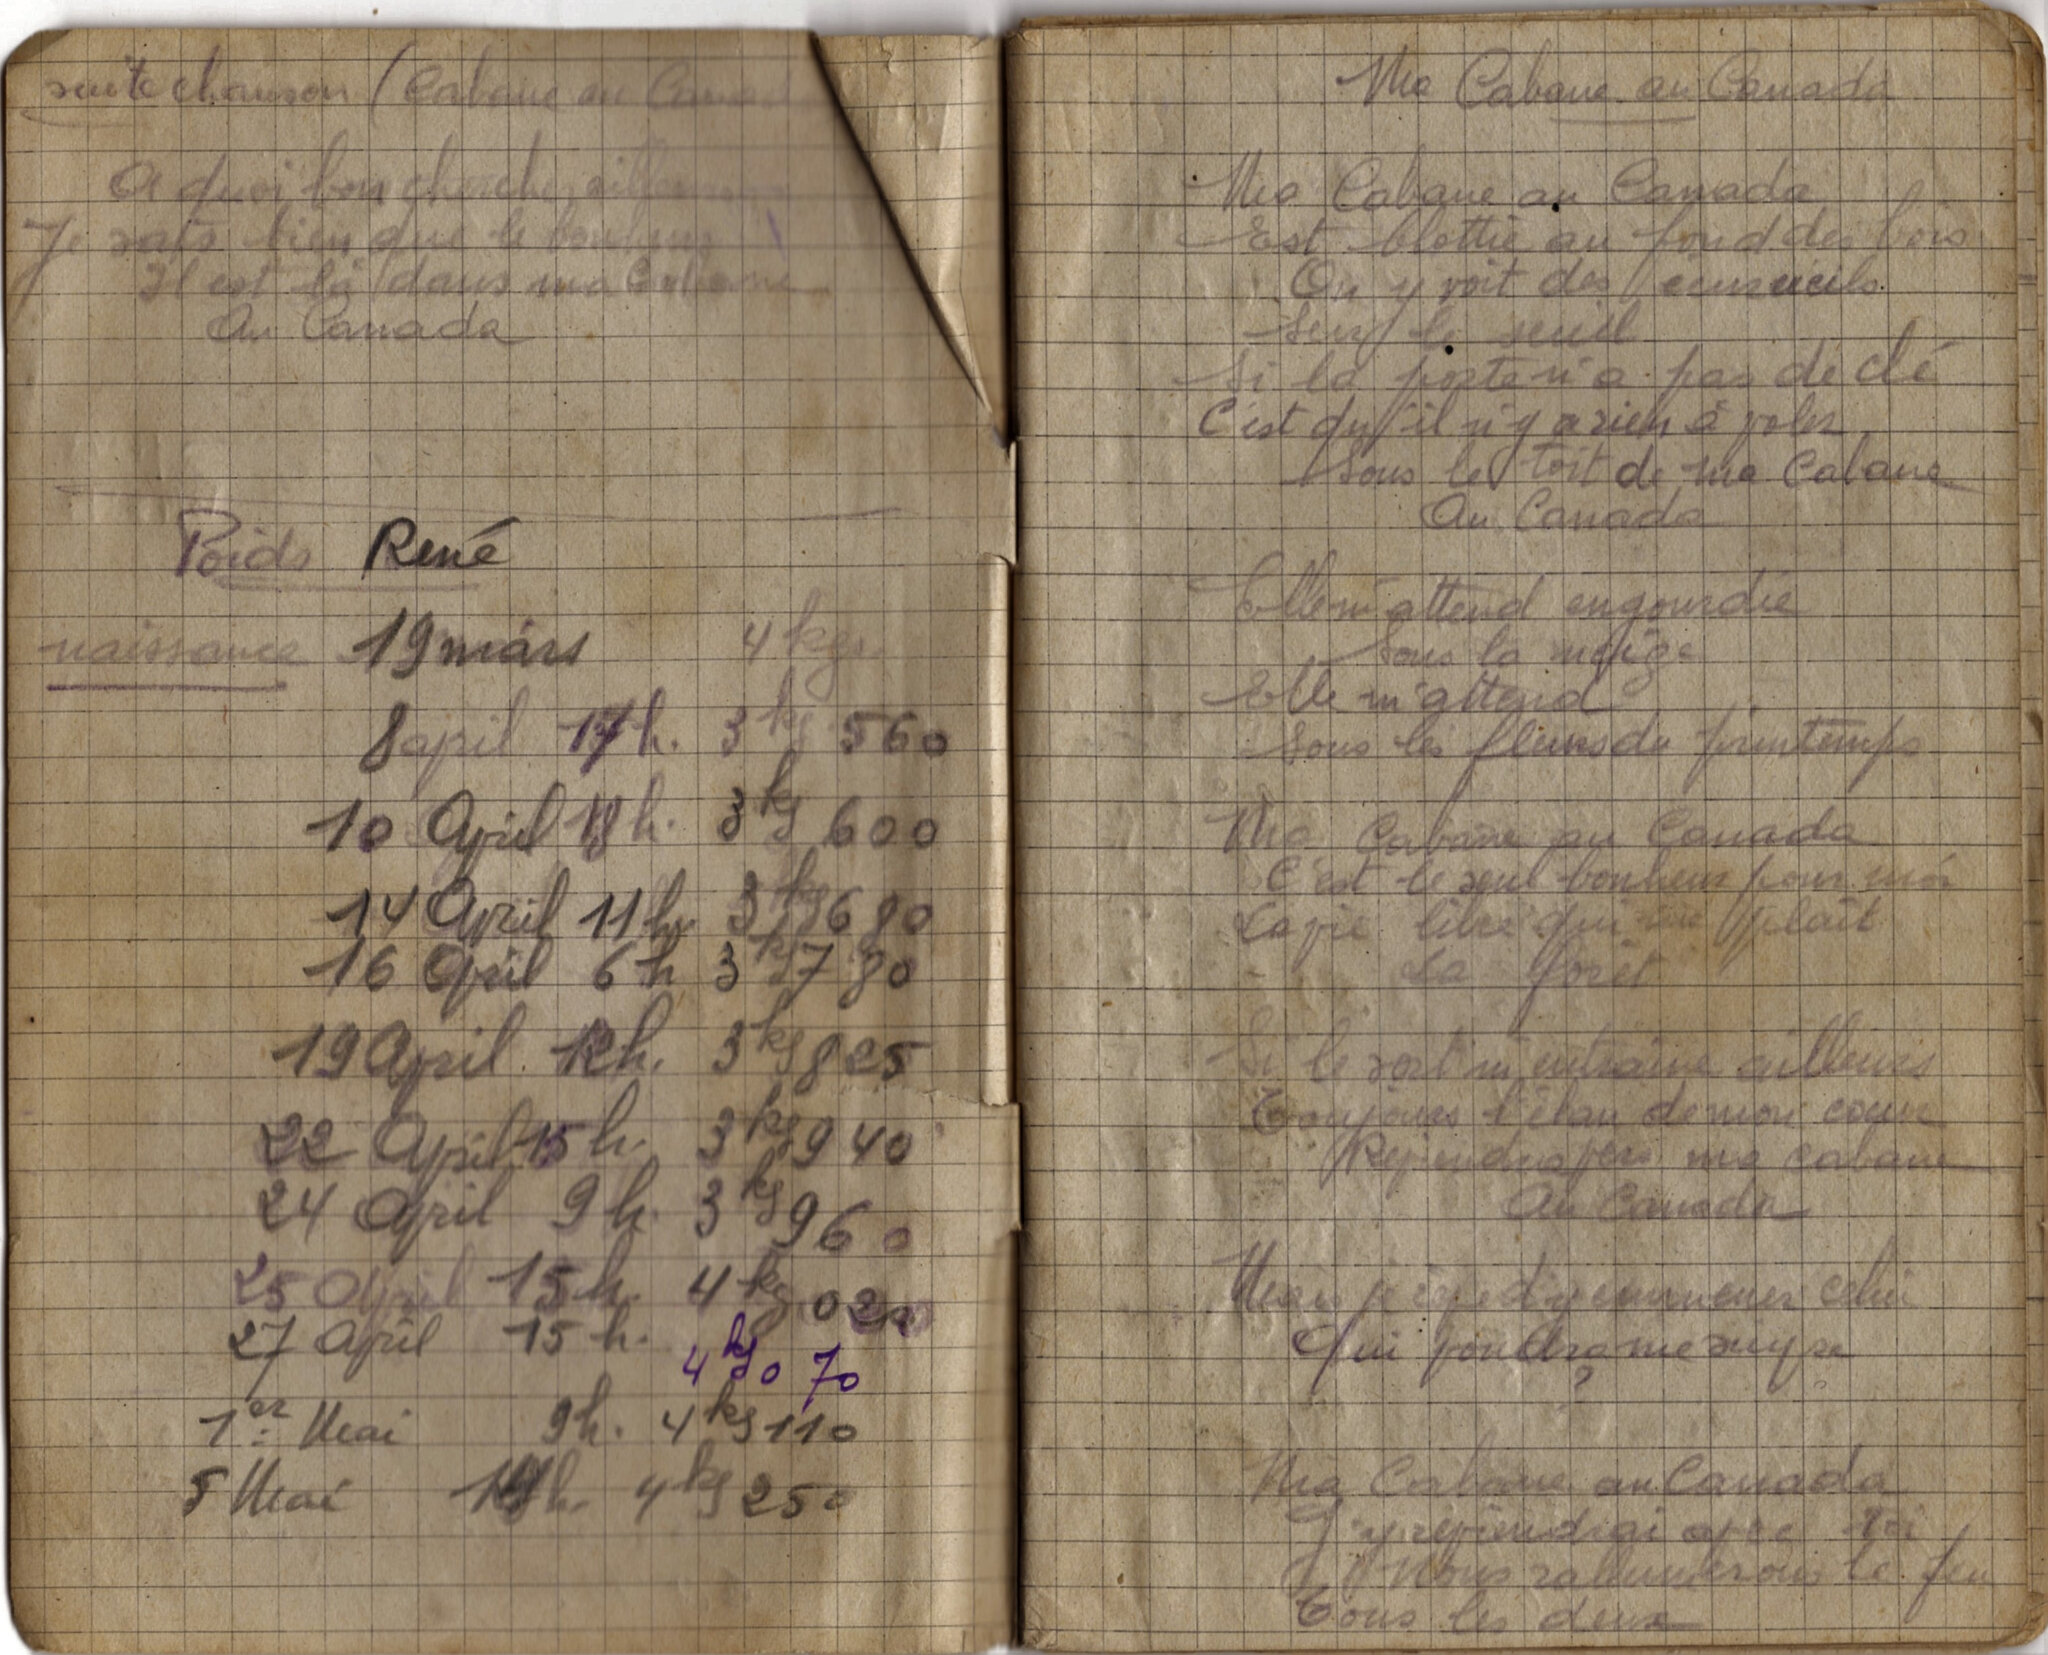 suite chanson (Cabane au Canada
A quoi bon chercher ailleurs
Je sais bien que le bonheur
Il est là dans ma Cabane
Au Canada
Poids René
naissance 19 mars 4 kgs.
8 april 17h. 3 kg 560
10 April 18 h. 3 kg 600
14 April 11 h. 3 kg 680
16 April 6 h 3 kg 780
19 April. 12h. 3 kg 825
22 April 15 h. 3 kg 940
24 April 9 h. 3 kg 960
25 April 15 h. 4 kg 020
27 April 15 h. 4 kg 070
1er Mai 9h. 4 kg 110
5 Mai h. 4 kg 250
Ma Cabane au Canada
Ma Cabane au Canada
Est blottie au fond des bois
On y voit des écureuils
Sur le seuil
Si la porte n'a pas de clé
C'est qu'il n'y a rien à voler
Sous le toit de ma Cabane
Au Canada
Elle m'attend engourdie
Sous la neige
Elle m'attend
Sous les fleurs du printemps
Ma Cabane au Canada
C'est le seul bonheur pour moi
La vie libre qui me plait
La forêt
Si le sort m'entraine ailleurs
Toujours l'élan de mon coeur
Reviendra vers ma cabane
Au Canada
Mais je rêve d'y emmener celui
Qui voudra me suivre
Ma Cabane au Canada
J'y reviendrai avec toi
Nous rallumerons le feu
Tous les deux